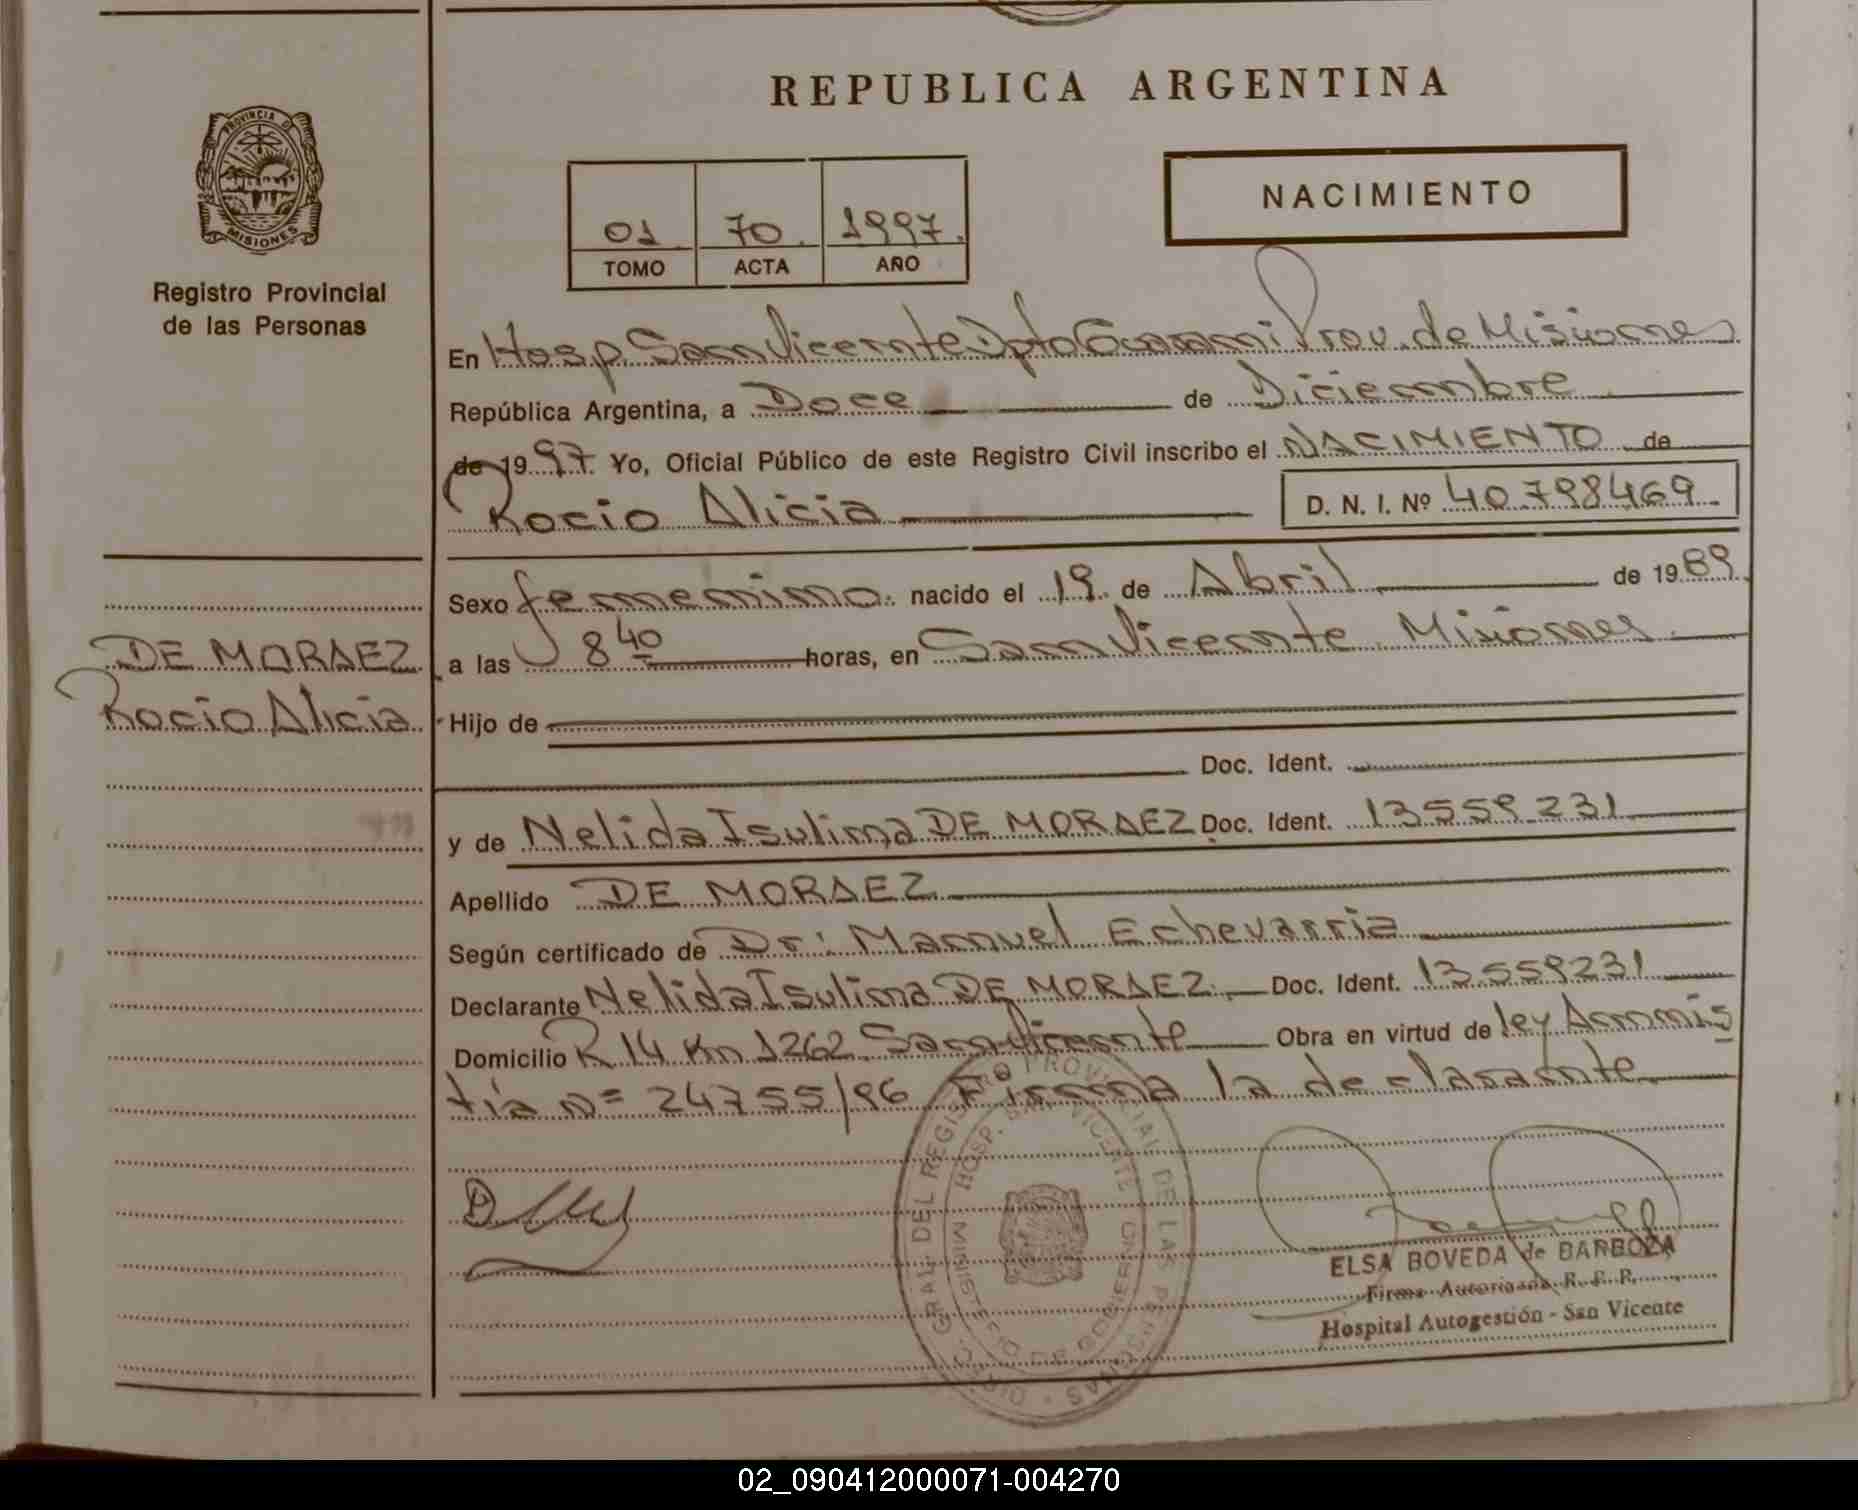 REPUBLICA ARGENTINA
PROVINCIA DE
MISIONES
Registro Provincial
de las Personas
NACIMIENTO
01 70 1997.
TOMO ACTA AÑO
En Hosp. San Vicente Dpto Guarani Prov. de Misiones
República Argentina, a Doce de Diciembre
de 1997. Yo, Oficial Público de este Registro Civil inscribo el NACIMIENTO de
Rocio Alicia D. N. I. Nº 40.798469
Sexo femenino. nacido el 19. de Abril de 1989.
DE MORAEZ
Rocio Alicia
a las 8 40 horas, en San Vicente Misiones
Hijo de
Doc. Ident.
y de Nelida Isulina DE MORAEZ Doc. Ident. 13559231
Apellido DE MORAEZ
Según certificado de Dr: Manuel Echevarria
Declarante Nelida Isulina DE MORAEZ. Doc. Ident. 13.559231
Domicilio R 14 Km 1262 San Vicente Obra en virtud de ley Amnis
tía Nº 24755/96 Firma la declarante
DIRECC. GRAL. DEL REGISTRO PROVINCIAL DE LAS PERSONAS
HOSP. SAN VICENTE
MINISTERIO DE GOBIERNO
ELSA BOVEDA de BARBOZA
Firma Autorizada R. P. P.
Hospital Autogestión - San Vicente
02_090412000071-004270